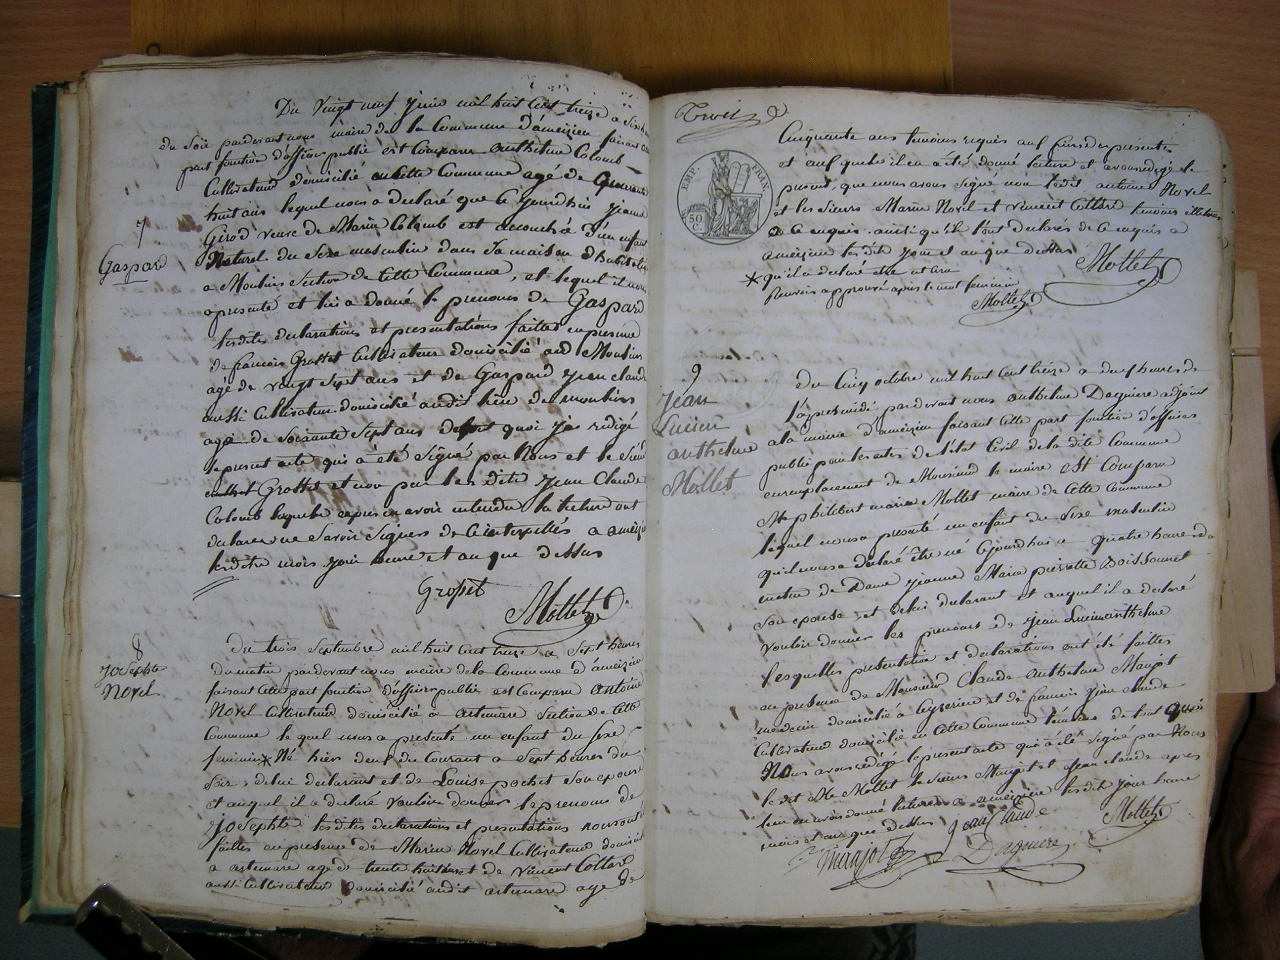 Du Vingt neuf Juin mil huit Cent treize a Sept
du Soir pardevant nous maire de la Commune D'ameizieu faisant
part fonction d'officier public est Comparu anthelme Colomb
Cultivateur domicilié en Cette Commune agé de quarante
huit ans lequel nous a déclaré que Ce Jourd'hui Jeanne
Girod veuve de Marin Colomb est accouchée d'un enfant
Naturel du Sexe masculin dans Sa maison d'habitation
a Moulins Section de Cette Commune, et lequel il nous
a presenté et lui a donné le prenoms de Gaspard
7
Gaspard
lesdites declarations et presentations faittes en presence
de francois Grosset Cultivateur domicilié aud Moulins
agé de vingt Sept ans et de Gaspard Jean Claude
aussi Cultivateur domicilié audit lieu de moulins
agé de Soixante Sept ans de quoi j'ai redigé
le present acte qui a été Signé par Nous et le Sieur
Grosset et non par les dits Jean Claude
Colomb lequels apres en avoir entendu la lecture ont
declarer ne Savoir Signer de Ce interpellés a ameizieu
lesdits mois Jour heure et an que dessus
Grosset
Mollet
8
Josephte
Novel
du trois Septembre mil huit Cent treize a Sept heures
du matin pardevant nous maire de la Commune d'ameizieu
faisant Cette part fonction d'officier public est Comparu antoine
Novel Cultivateur domicilié a artemare Section de Cette
Commune lequel nous a presenté un enfant du Sexe
feminin * Né hier deux du Courant a Sept heures du
Soir, de lui declarant et de Louise pochet Son epouse
et auquel il a declaré vouloir donner le prenoms de
Josephte lesdites declarations et presentations
faittes en presence de Marin Novel Cultivateur domicilié
a artemare agé de trente huit ans et de Vincent Collard
aussi Cultivateur domicilié audit artemare agé de
Trois
EMP. FRAN.
50 C.
Cinquante ans temoins requis
et auxquels il en a été donné lecture et avons redigé le
present, que nous avons Signé non ledit antoine Novel
et les Sieurs Marin Novel et Vincent Collard temoins illiteres
de Ce enquis. ainsi qu'ils l'ont declarés de Ce enquis a
ameizieu lesdits Jour et an que dessus
Mollet
* qu'il a declaré etre
approuvé apres le mot feminin
Mollet
9
Jean
Lucien
anthelme
Mollet
du Cinq octobre mil huit Cent treize a deux heures de
l'après midi pardevant nous anthelme Dagniere adjoint
a la mairie d'ameizieu faisant Cette part fonction d'officier
public pour les actes de l'etat Civil de la dite Commune
en remplacement de Monsieur le maire est Comparu
Mr philibert marie Mollet maire de Cette Commune
lequel nous a presenté un enfant du Sexe masculin
qu'il nous a déclaré être né Cejourdhui a quatre heures du
matin de Dame Jeanne Marie pierrette Boissonnet
Son epouse et de lui declarant et auquel il a déclaré
vouloir donner les prenoms de Jean Lucien anthelme
lesquelles presentation et declarations ont été faittes
en presence de Monsieur Claude Anthelme Maujot
médecin domicilié a Ceyzerieu et de francois Jean Claude
Cultivateur domicilié en Cette Commune temoins de tout quoi
Nous avons rédigé le present acte qui a été Signé par Nous
le dit Mr Mollet le Sieurs Maujot et Jean Claude apres
leur en avoir donné lecture a ameizieu lesdit Jour heure
mois et an que dessus
Jean Claude
Mollet
Maujot
Dagniere